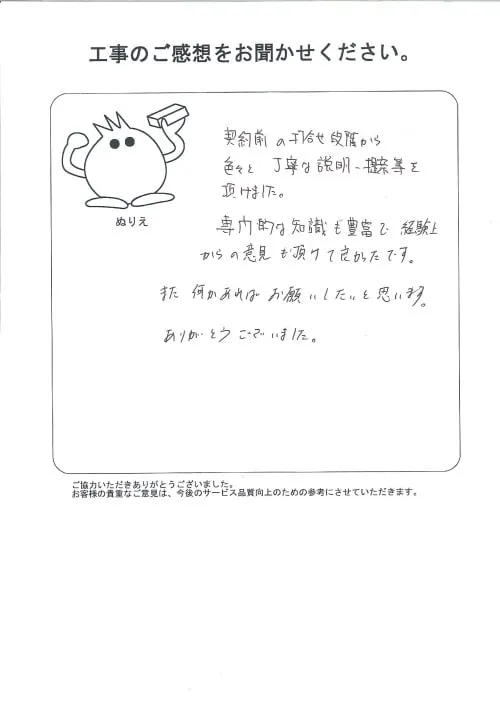 工事のご感想をお聞かせください。
ぬりえ
契約前の打合せ段階から
色々と丁寧な説明、提案等を
頂けました。
専門的な知識も豊富で経験上
からの意見も頂けて良かったです。
また何かあればお願いしたいと思います。
ありがとうございました。
ご協力いただきありがとうございました。
お客様の貴重なご意見は、今後のサービス品質向上のための参考にさせていただきます。